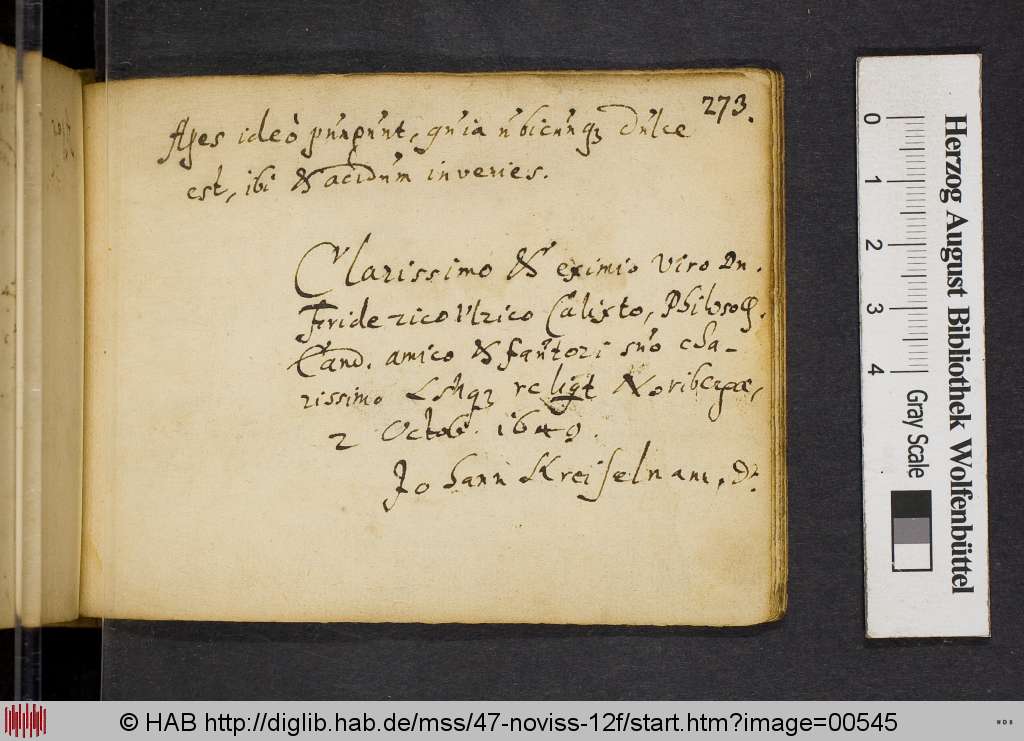 273.
Apes ideò pungunt, quia ubicunq; dulce
est, ibi & acidum invenies.
Clarissimo & eximio Viro Dn.
Friderico Ulrico Calixto, Philosoph.
Cand. amico & fautori suo cha-
rissimo Noribergæ,
2 Octob. 1649.
Johann
0 1 2 3 4
Gray Scale
Herzog August Bibliothek Wolfenbüttel
© HAB http://diglib.hab.de/mss/47-noviss-12f/start.htm?image=00545